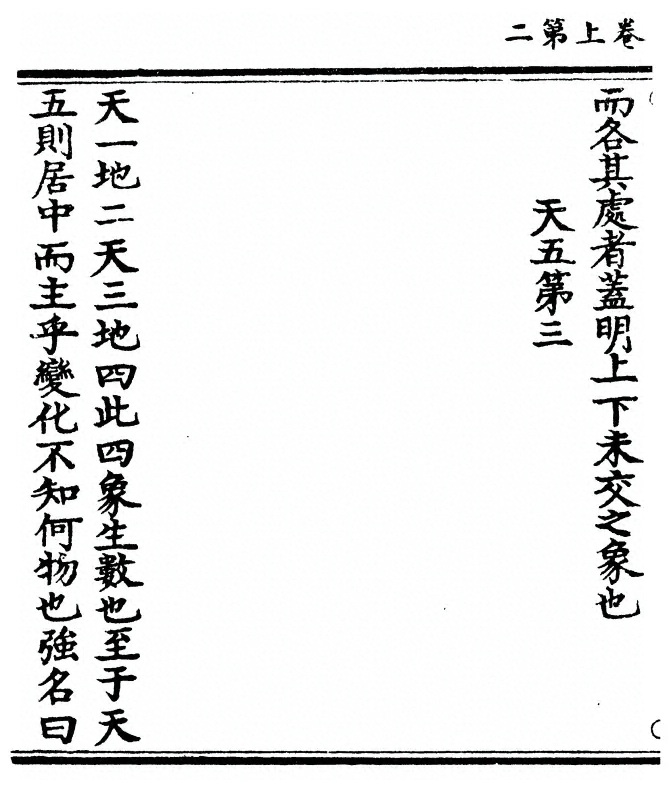 卷上第二
而各其處者蓋明上下未交之象也
天五第三
天一地二天三地四此四象生數也至于天
五則居中而主乎變化不知何物也強名曰